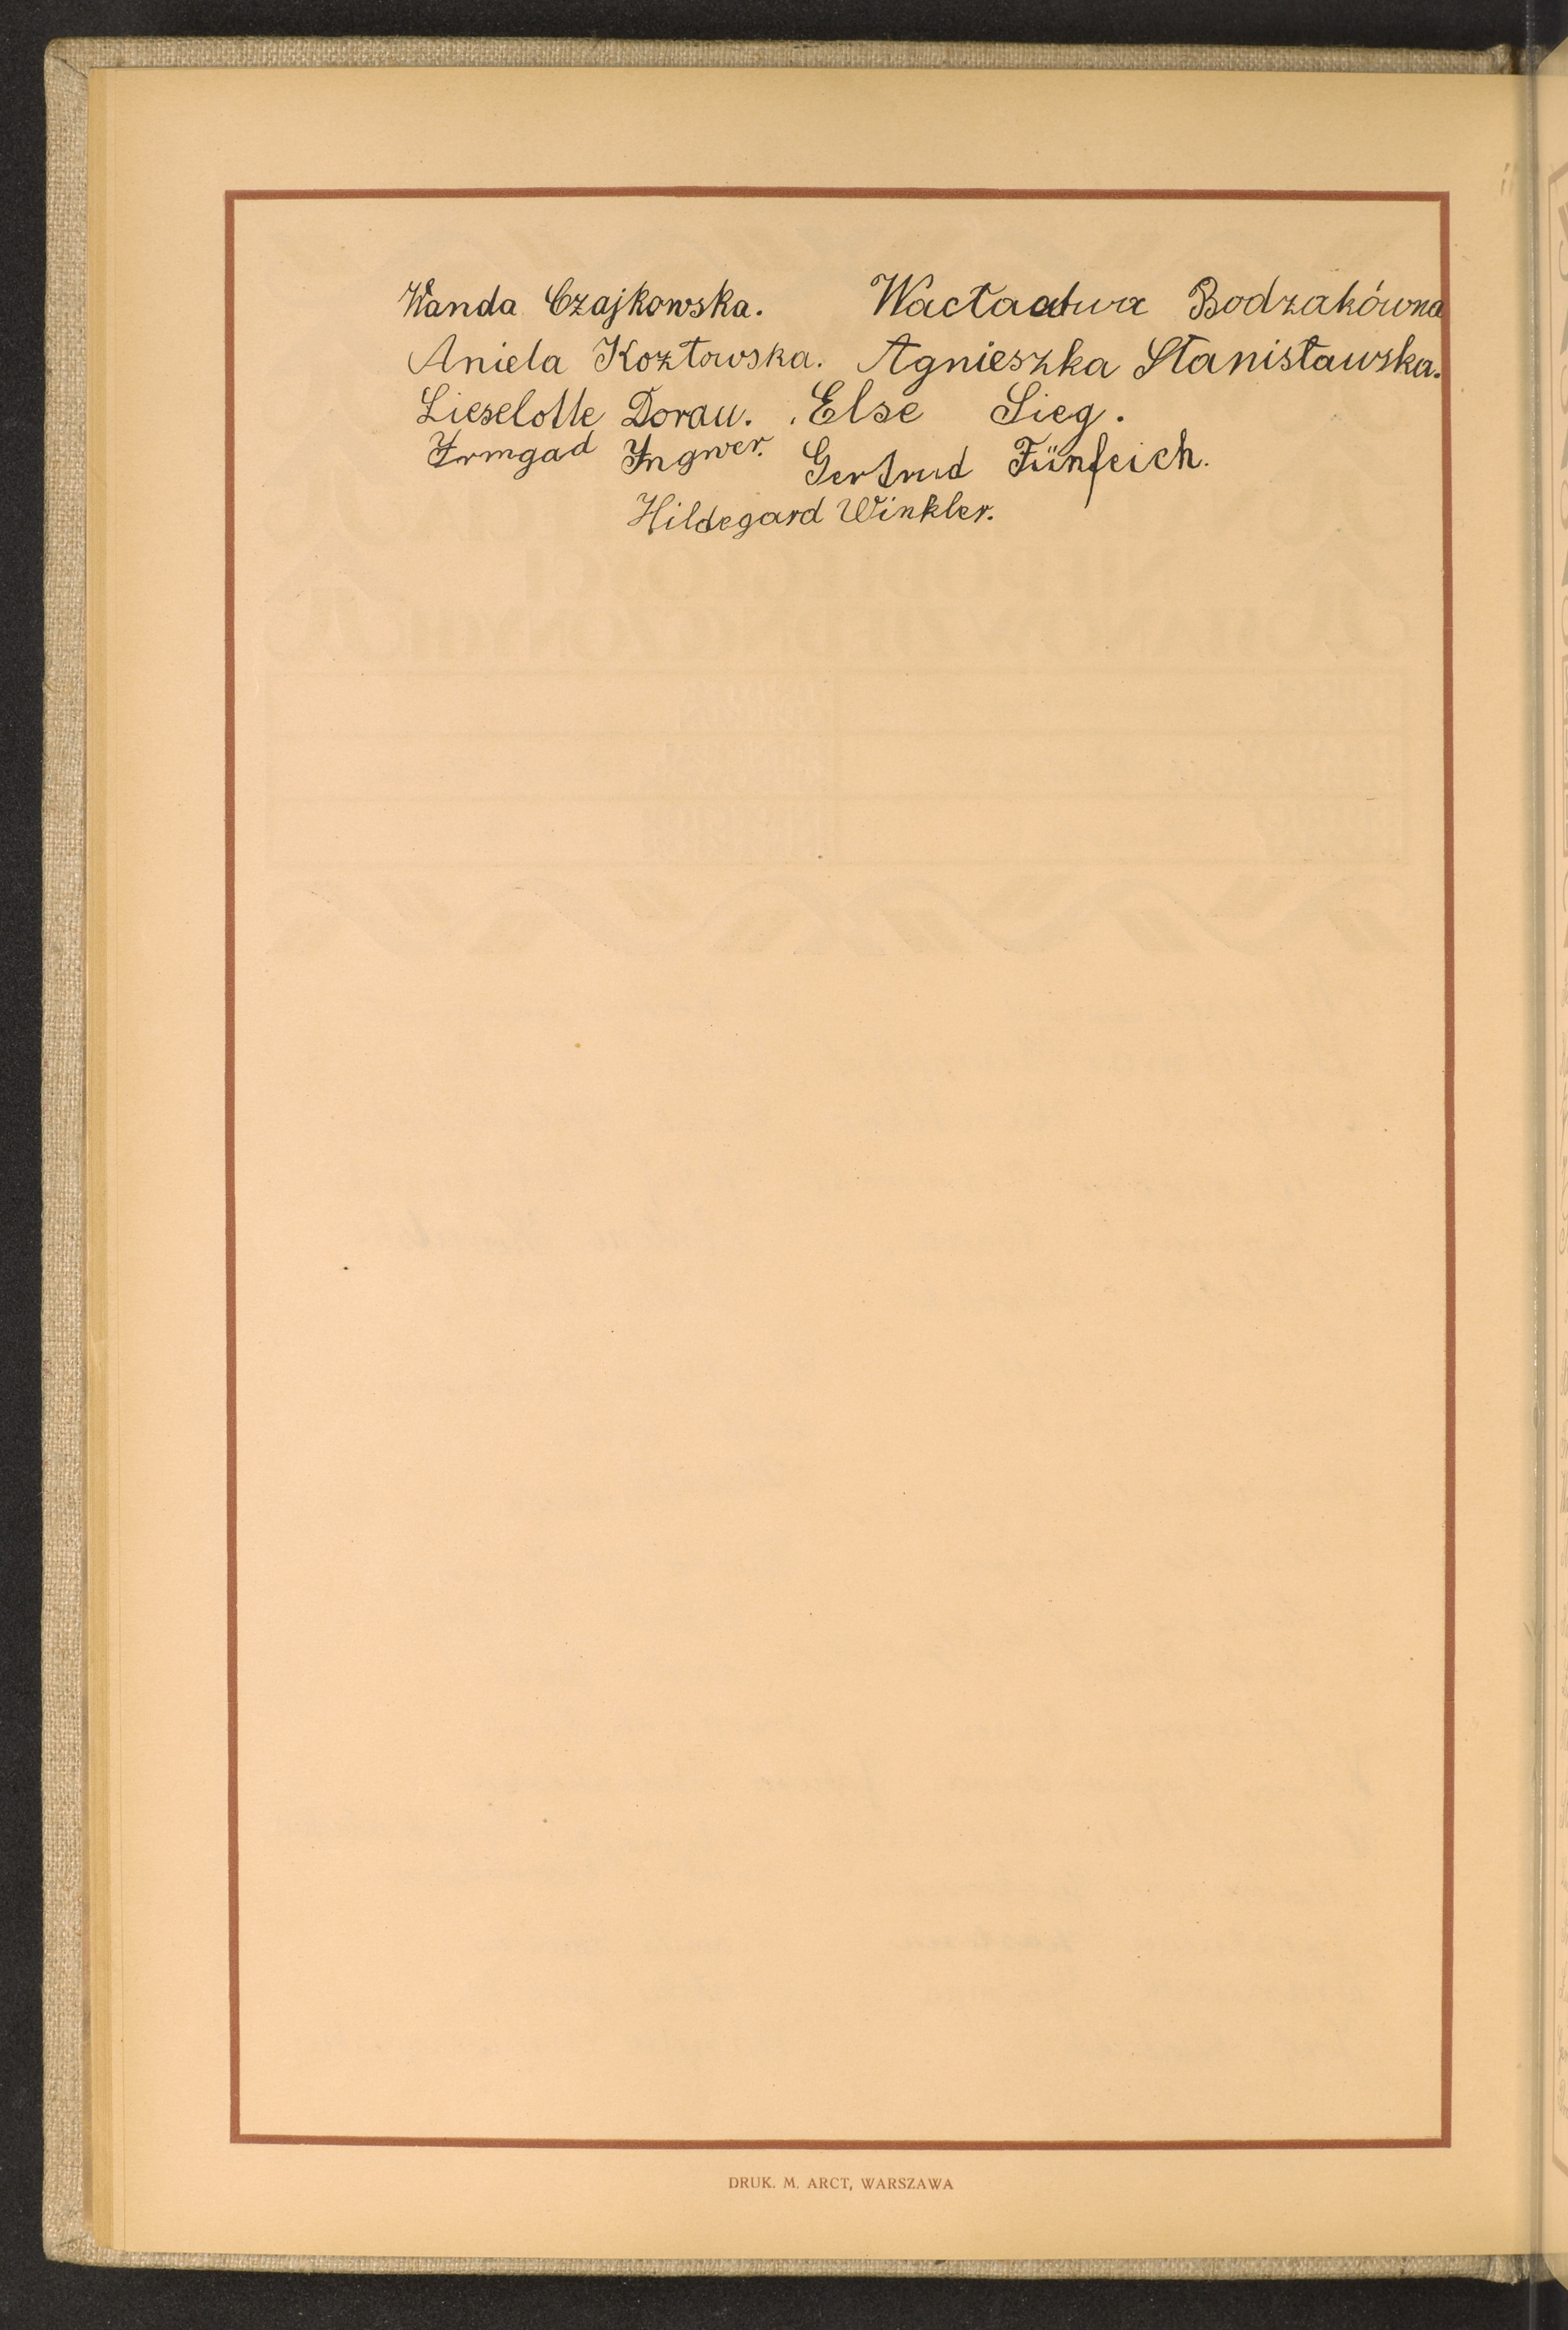 Wanda Czajkowska. Wacława Bodzakówna
Aniela Kozłowska. Agnieszka Stanisławska.
Lieselotte Dorau. Else Sieg.
Irmgad Ingwer. Gertrud Fünfeich.
Hildegard Winkler.
DRUK. M. ARCT, WARSZAWA